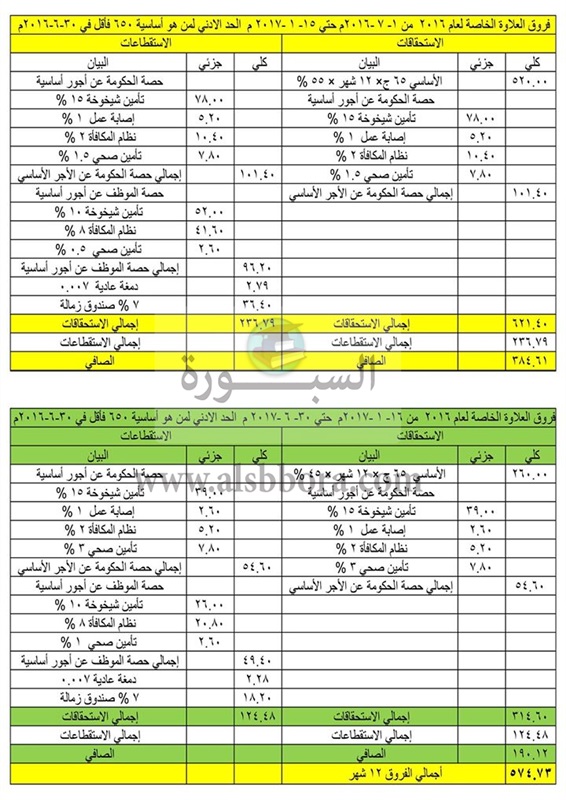 فروق العلاوة الخاصة لعام ٢٠١٦ من ١-٧-٢٠١٦م حتي ١٥-١-٢٠١٧ م الحد الادني لمن هو أساسية ٦٥٠ فأقل في ٣٠-٦-٢٠١٦م
الاستحقاقات الاستقطاعات
كلي جزئي البيان كلي جزئي البيان
٥٢٠.٠٠ الأساسي ٦٥ ج× ١٢ شهر × ٥٥ % حصة الحكومة عن أجور أساسية
حصة الحكومة عن أجور أساسية ٧٨.٠٠ تأمين شيخوخة ١٥ %
٧٨.٠٠ تأمين شيخوخة ١٥ % ٥.٢٠ إصابة عمل ١ %
٥.٢٠ إصابة عمل ١ % ١٠.٤٠ نظام المكافأة ٢ %
١٠.٤٠ نظام المكافأة ٢ % ٧.٨٠ تأمين صحي ١.٥ %
٧.٨٠ تأمين صحي ١.٥ % ١٠١.٤٠ إجمالي حصة الحكومة عن الأجر الأساسي
١٠١.٤٠ إجمالي حصة الحكومة عن الأجر الأساسي حصة الموظف عن أجور أساسية
٥٢.٠٠ تأمين شيخوخة ١٠ %
٤١.٦٠ نظام المكافأة ٨ %
٢.٦٠ تأمين صحي ٠.٥ %
٩٦.٢٠ إجمالي حصة الموظف عن أجور أساسية
٢.٧٩ دمغة عادية ٠.٠٠٧
٣٦.٤٠ ٧ % صندوق زمالة
٦٢١.٤٠ إجمالي الاستحقاقات ٢٣٦.٧٩ إجمالي الاستحقاقات
٢٣٦.٧٩ إجمالي الاستقطاعات إجمالي الاستقطاعات
٣٨٤.٦١ الصافي الصافي
السبورة
فروق العلاوة الخاصة لعام ٢٠١٦ من ١٦-١-٢٠١٧م حتي ٣٠-٦-٢٠١٧ م الحد الادني لمن هو أساسية ٦٥٠ فأقل في ٣٠-٦-٢٠١٦م
الاستحقاقات الاستقطاعات
كلي جزئي البيان كلي جزئي البيان
٢٦٠.٠٠ الأساسي ٦٥ ج× ١٢ شهر × ٤٥ % حصة الحكومة عن أجور أساسية
www.alsbbora.com
حصة الحكومة عن أجور أساسية ٣٩.٠٠ تأمين شيخوخة ١٥ %
٣٩.٠٠ تأمين شيخوخة ١٥ % ٢.٦٠ إصابة عمل ١ %
٢.٦٠ إصابة عمل ١ % ٥.٢٠ نظام المكافأة ٢ %
٥.٢٠ نظام المكافأة ٢ % ٧.٨٠ تأمين صحي ٣ %
٧.٨٠ تأمين صحي ٣ % ٥٤.٦٠ إجمالي حصة الحكومة عن الأجر الأساسي
٥٤.٦٠ إجمالي حصة الحكومة عن الأجر الأساسي حصة الموظف عن أجور أساسية
٢٦.٠٠ تأمين شيخوخة ١٠ %
٢٠.٨٠ نظام المكافأة ٨ %
٢.٦٠ تأمين صحي ١ %
٤٩.٤٠ إجمالي حصة الموظف عن أجور أساسية
٢.٢٨ دمغة عادية ٠.٠٠٧
١٨.٢٠ ٧ % صندوق زمالة
٣١٤.٦٠ إجمالي الاستحقاقات ١٢٤.٤٨ إجمالي الاستحقاقات
١٢٤.٤٨ إجمالي الاستقطاعات إجمالي الاستقطاعات
١٩٠.١٢ الصافي الصافي
٥٧٤.٧٣ أجمالي الفروق ١٢ شهر